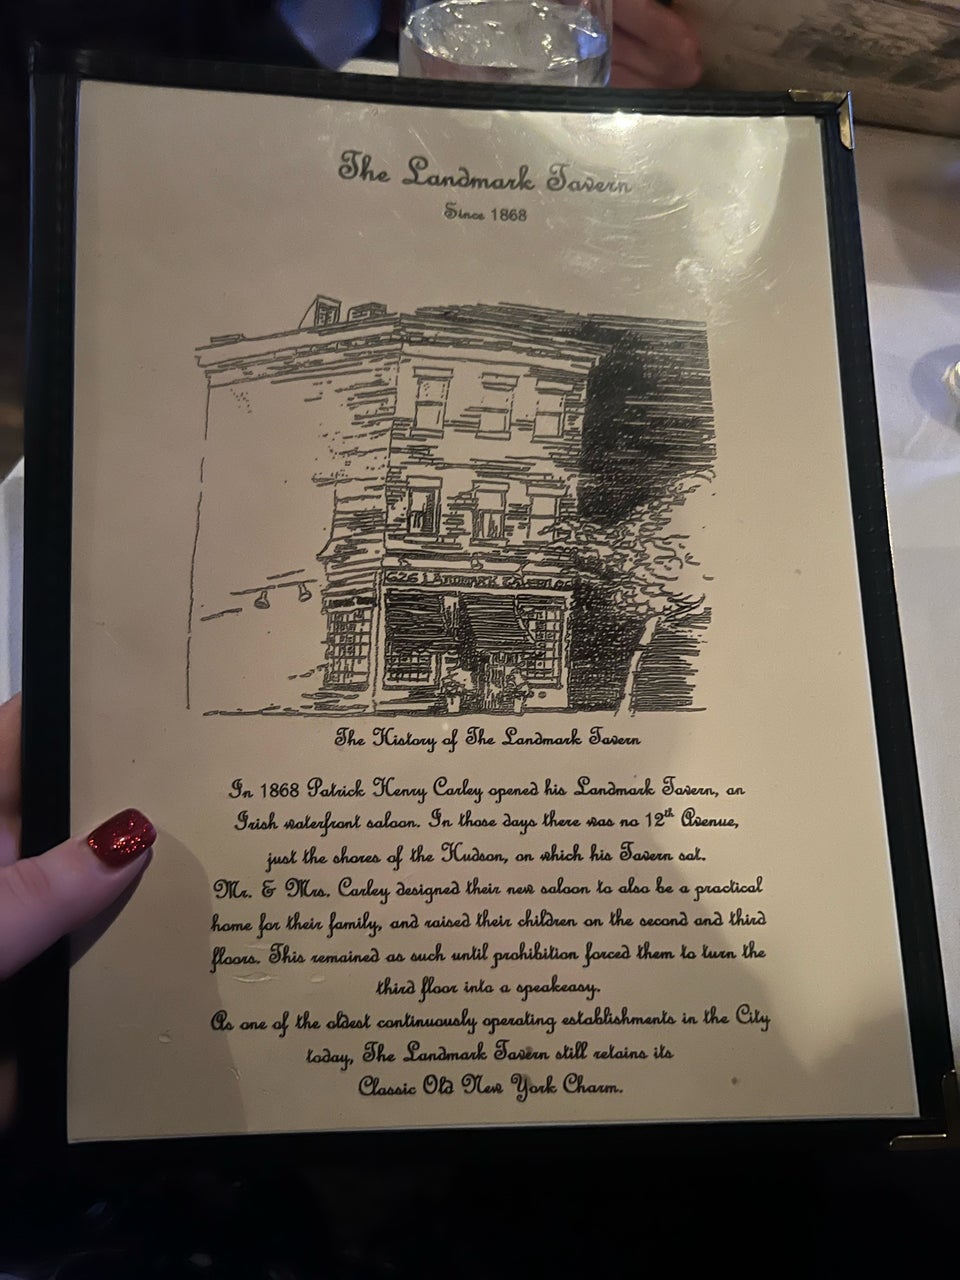 The Landmark Tavern
Since 1868
626 LANDMARK TAVERN
The History of The Landmark Tavern
In 1868 Patrick Henry Carley opened his Landmark Tavern, an
Irish waterfront saloon. In those days there was no 12th Avenue,
just the shores of the Hudson, on which his Tavern sat.
Mr. & Mrs. Carley designed their new saloon to also be a practical
home for their family, and raised their children on the second and third
floors. This remained as such until prohibition forced them to turn the
third floor into a speakeasy.
As one of the oldest continuously operating establishments in the City
today, The Landmark Tavern still retains its
Classic Old New York Charm.